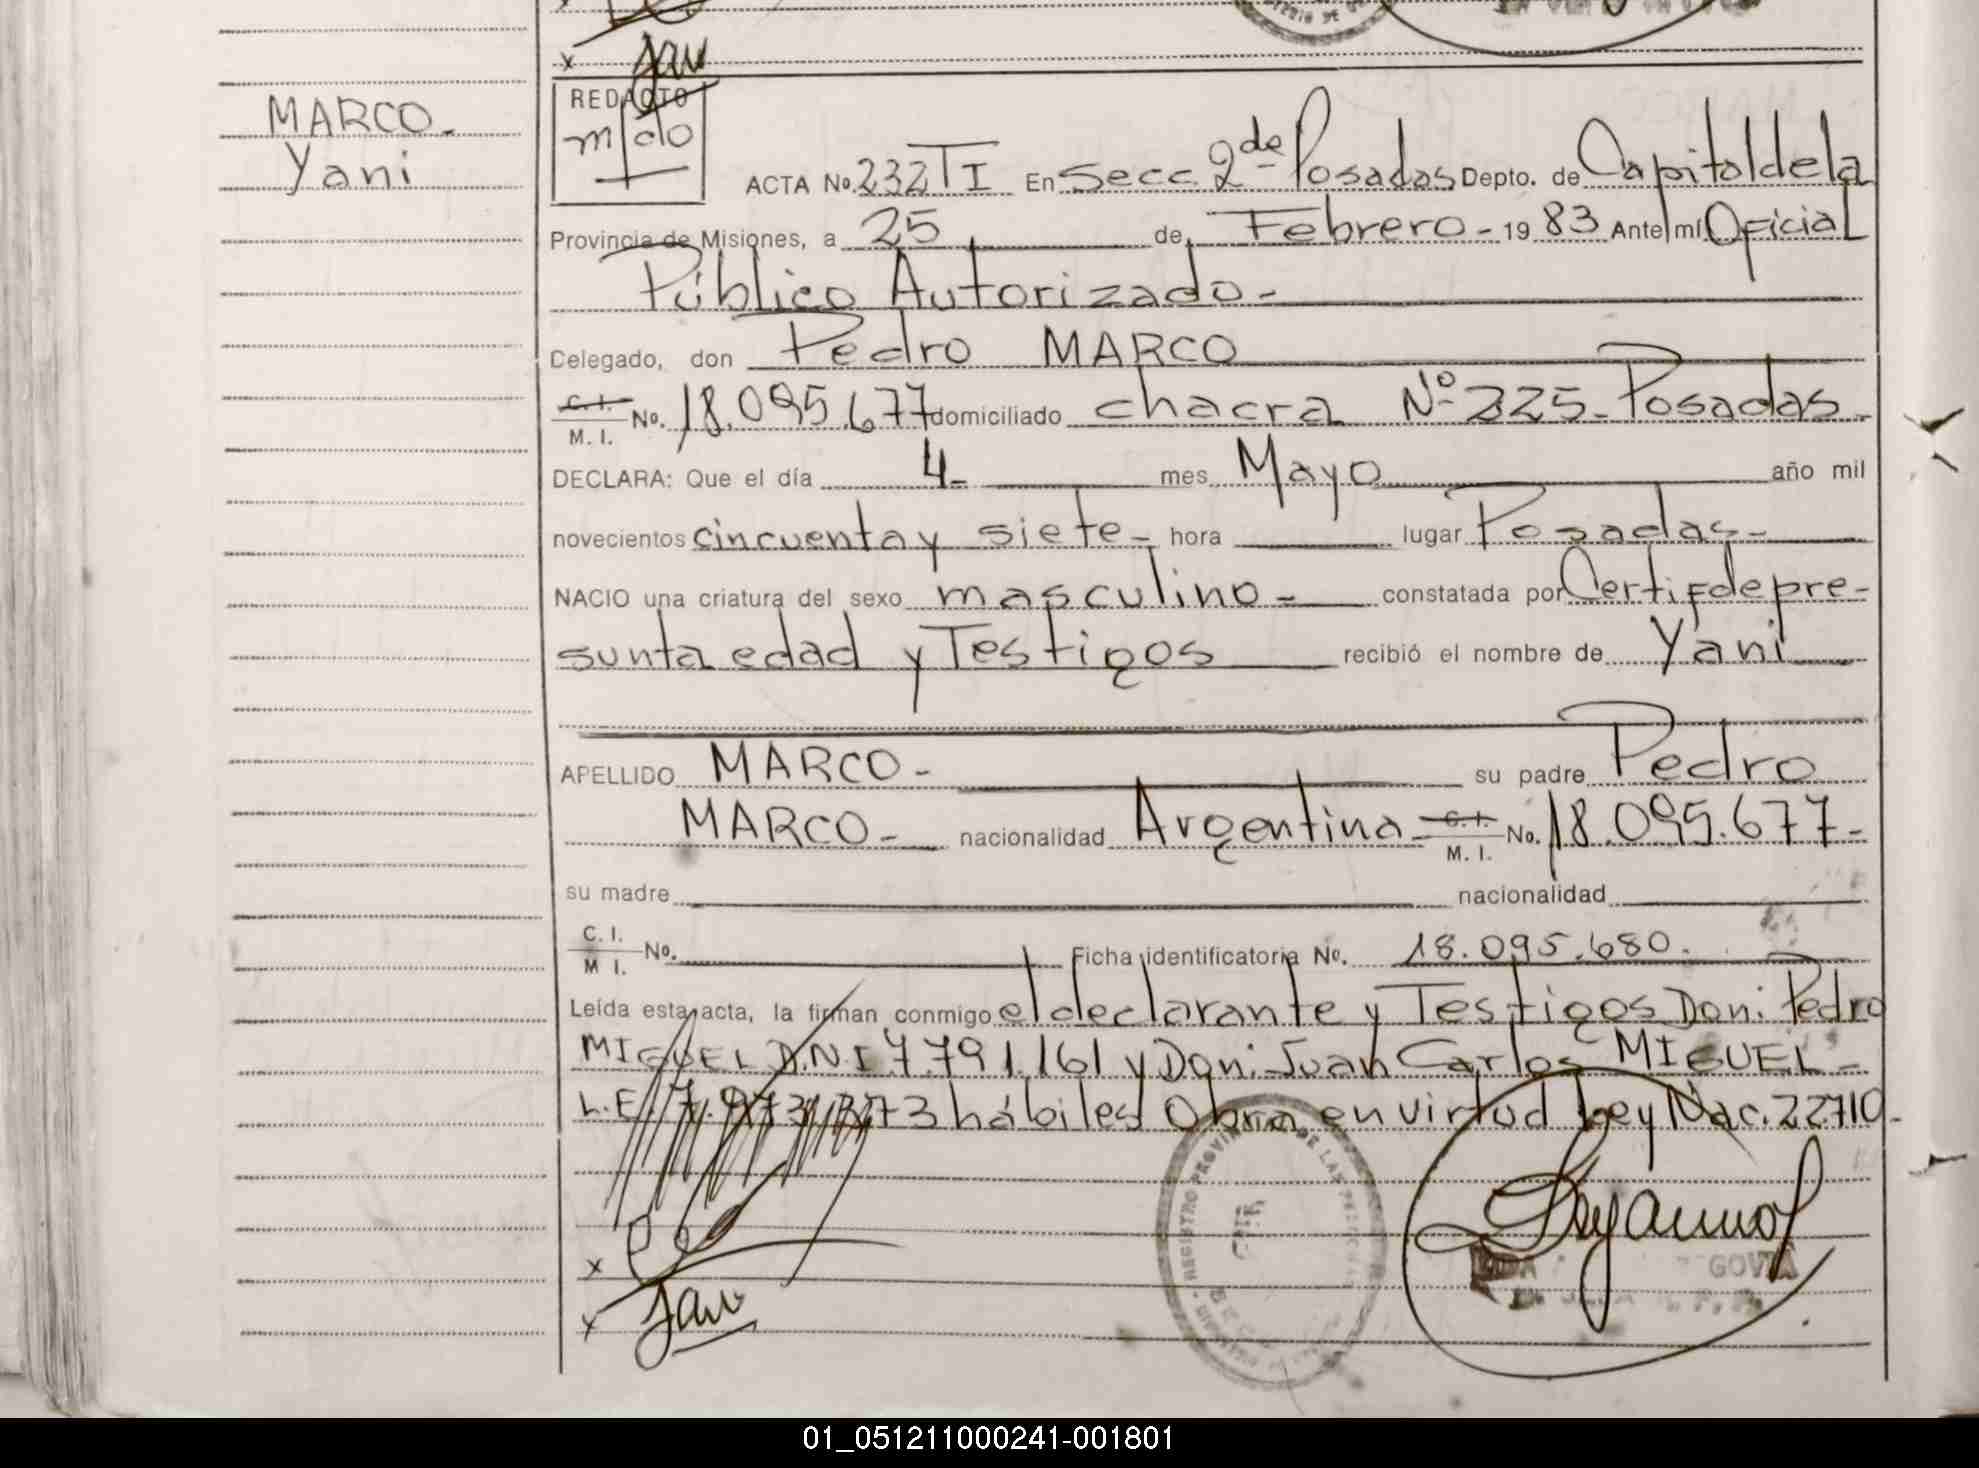 MARCO-
Yani
REDACTO
ACTA No. 232 TI En Secc 2de Posadas Depto. de Capital de la
Provincia de Misiones, a 25 de Febrero - 1983 Ante mí Oficial
Público Autorizado-
Delegado, don Pedro MARCO
C. I. M. I. No. 18.095.677 domiciliado chacra Nº 225- Posadas-
DECLARA: Que el día 4- mes Mayo año mil
novecientos cincuenta y siete- hora lugar Posadas-
NACIO una criatura del sexo masculino- constatada por Certif de pre-
sunta edad y Testigos recibió el nombre de Yani
APELLIDO MARCO- su padre Pedro
MARCO- nacionalidad Argentina- C. I. M. I. No. 18.095.677-
su madre nacionalidad
C. I. M I. No. Ficha identificatoria No. 18.095.680.
Leída esta acta, la firman conmigo el declarante y Testigos Don: Pedro
MIGUEL D.N.I 7.791.161 y Don: Juan Carlos MIGUEL-
L.E. hábiles Obra en virtud Ley Nac. 22710-
x
x
REGISTRO PROVIN DE LAS
GOVIA
01_051211000241-001801